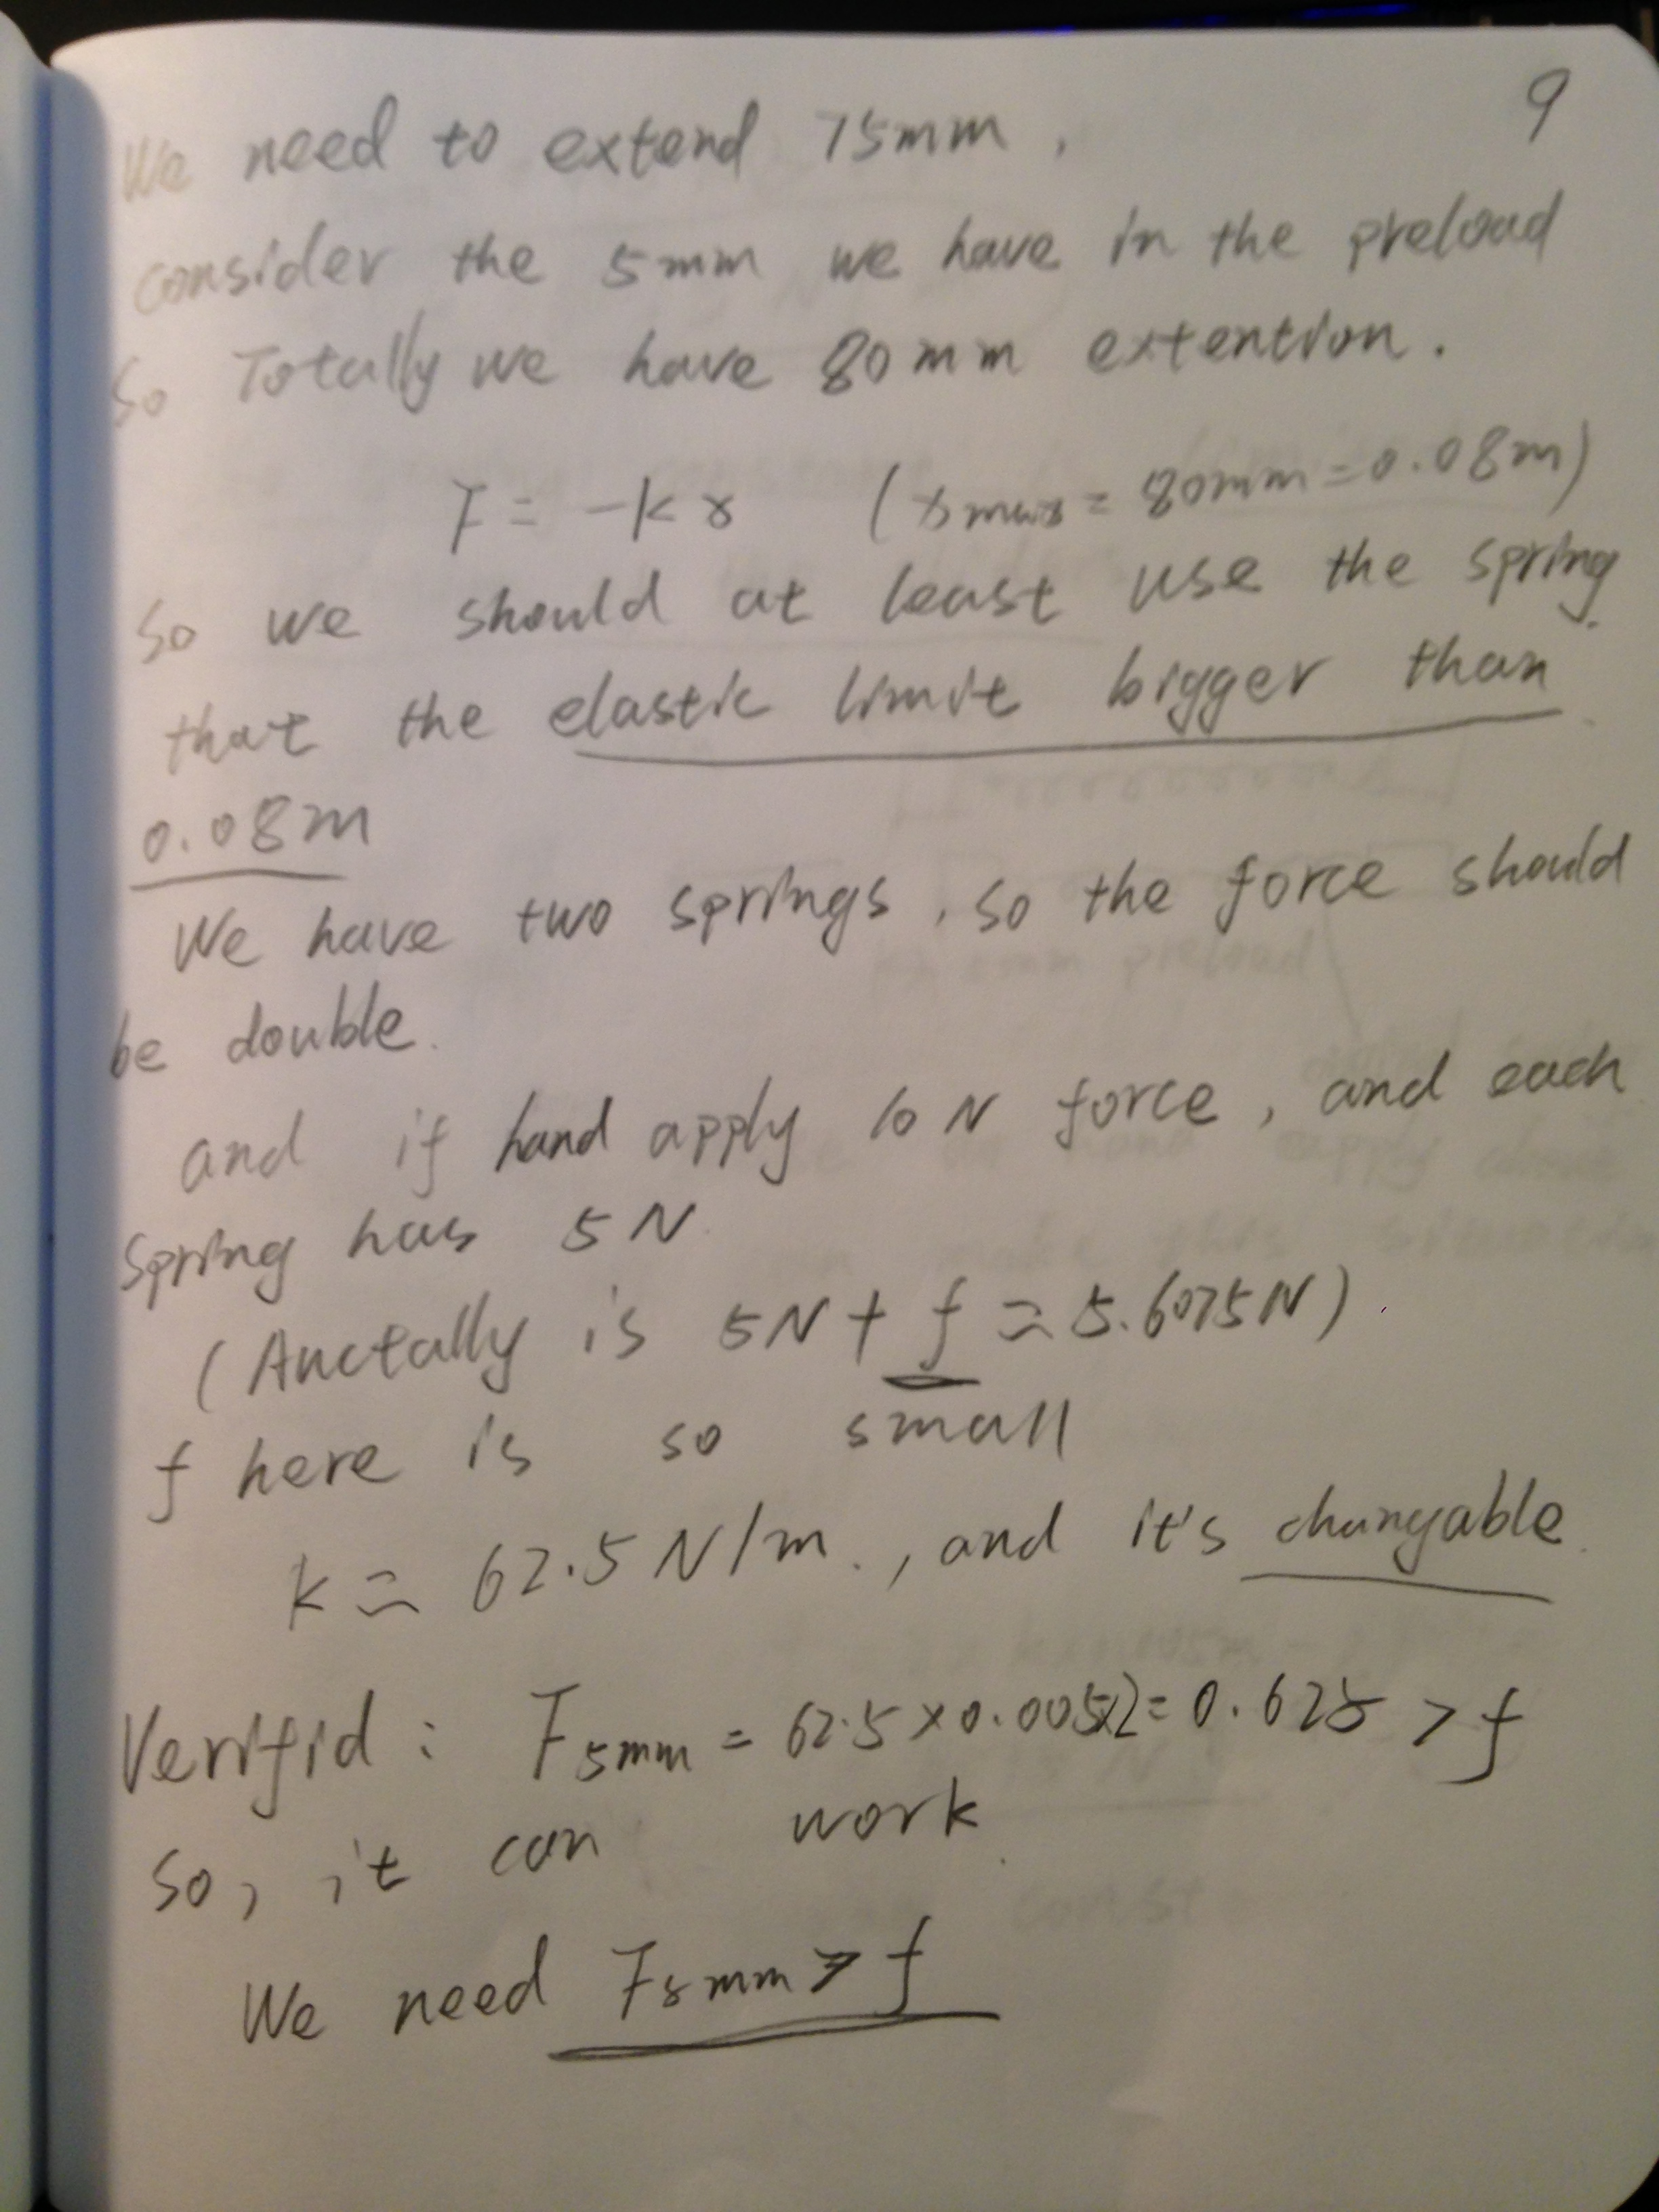 9
We need to extend 75mm,
consider the 5mm we have in the preload
So Totally we have 80mm extention.
F = -kx (xmax = 80mm = 0.08m)
So we should at least use the spring
that the elastic limit bigger than
0.08m
We have two springs, so the force should
be double.
and if hand apply 10N force, and each
spring has 5N
(Anctally is 5N + f ≈ 5.6075N).
f here is so small
k ≈ 62.5N/m., and it's changable.
Verifid: F5mm = 62.5×0.005×2 = 0.625 > f
So, it can work.
We need F5mm > f